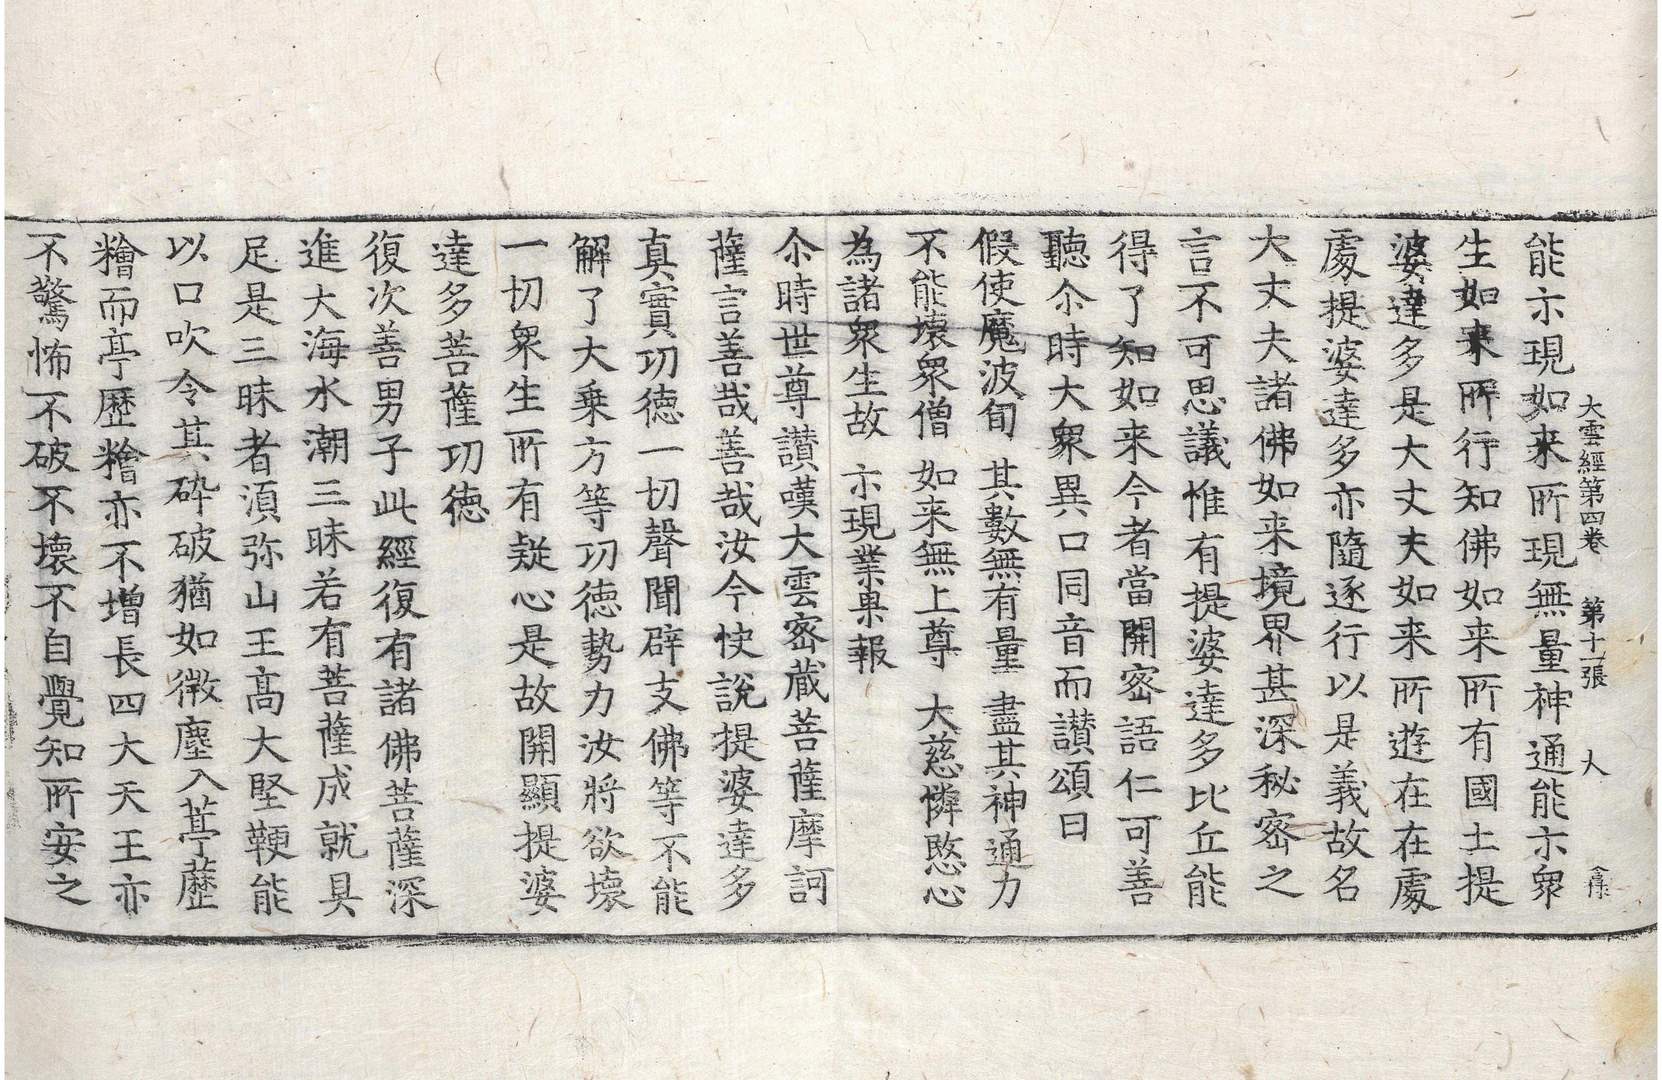 大雲經第四卷 第十一張 大
能示現如来所現無量神通能示衆
生如来所行知佛如来所有國土提
婆達多是大丈夫如来所遊在在處
處提婆達多亦隨逐行以是義故名
大丈夫諸佛如来境界甚深秘密之
言不可思議惟有提婆達多比丘能
得了知如来今者當開密語仁可善
聽尒時大衆異口同音而讃頌曰
假使魔波旬 其數無有量 盡其神通力
不能壊衆僧 如来無上尊 大慈憐愍心
為諸衆生故 示現業果報
尒時世尊讃嘆大雲密蔵菩薩摩訶
薩言善哉善哉汝今快說提婆達多
真實功徳一切聲聞辟支佛等不能
解了大乗方等功徳勢力汝將欲壊
一切衆生所有疑心是故開顯提婆
達多菩薩功徳
復次善男子此經復有諸佛菩薩深
進大海水潮三昧若有菩薩成就具
足是三昧者湏弥山王髙大堅鞕能
以口吹令其碎破猶如微塵入葶藶
糩而亭歷糩亦不増長四大天王亦
不驚怖不破不壊不自覺知所安之